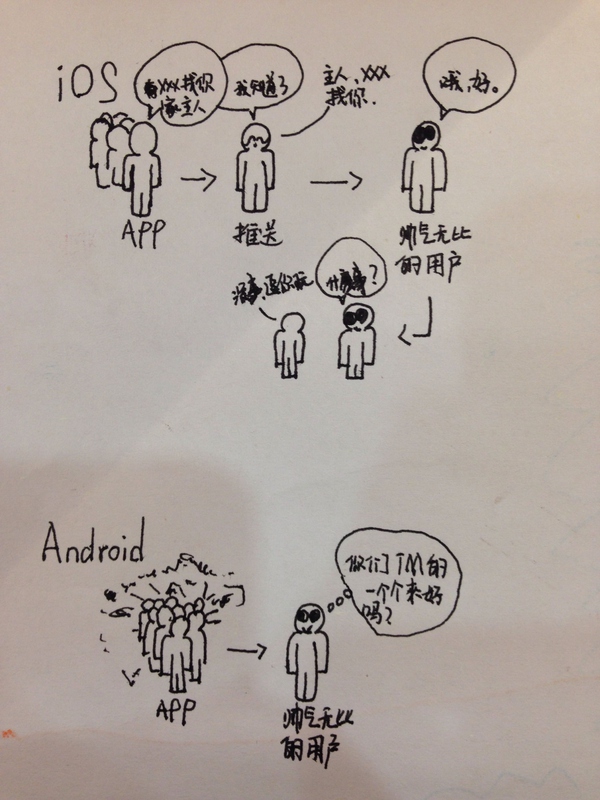 iOS
有XXX找你
家主人
我知道了
主人,XXX
找你.
哦,好。
APP
推送
帅气无比
的用户
没事,逗你玩
什么事?
Android
你们TM的
一个个来好
吗?
APP
帅气无比
的用户